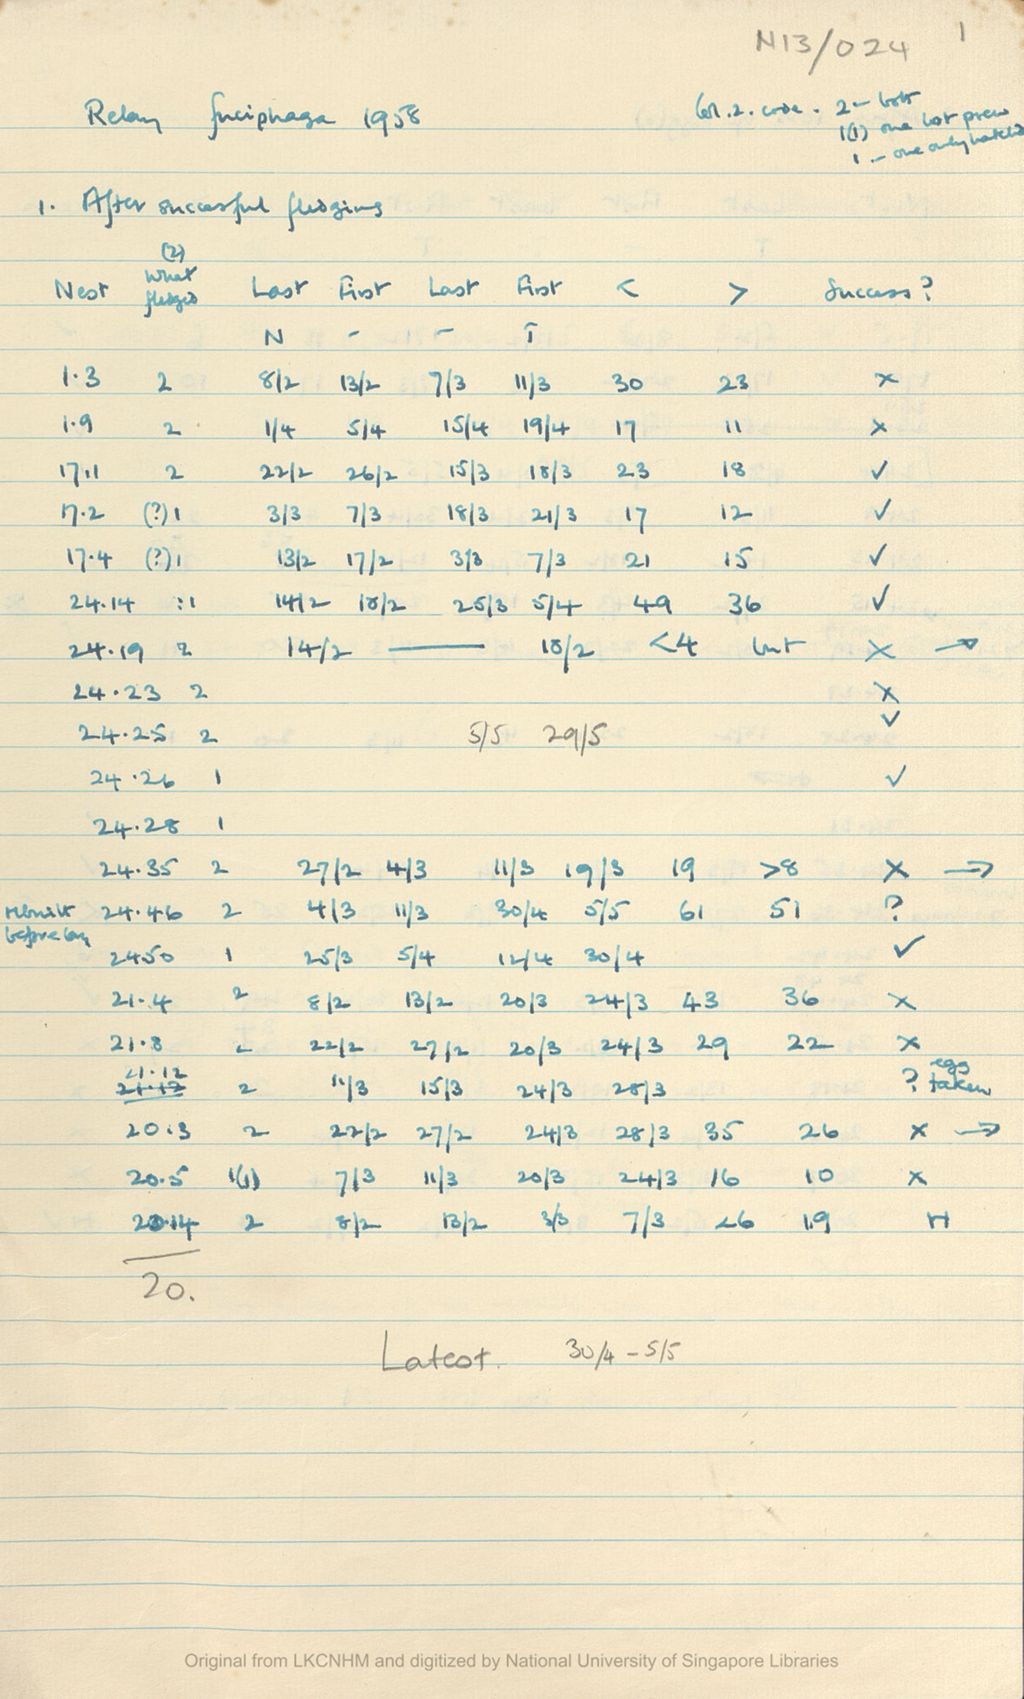 N13/024 1
Relay fuciphaga 1958
Col. 2. code. 2 - both
1(1) one lost prev
1 - one only hatched
1. After successful fledging
(2)
Nest What fledged Last First Last First < > Success?
N - - T
1.3 2 8/2 13/2 7/3 11/3 30 23 ×
1.9 2 1/4 5/4 15/4 19/4 17 11 ×
17.1 2 22/2 26/2 15/3 18/3 23 18 ✓
17.2 (?)1 3/3 7/3 18/3 21/3 17 12 ✓
17.4 (?)1 13/2 17/2 3/3 7/3 21 15 ✓
24.14 :1 14/2 18/2 25/3 5/4 49 36 ✓
24.19 2 14/2 — 18/2 <4 but × →
24.23 2 ×
24.25 2 5/5 29/5 ✓
24.26 1 ✓
24.28 1
24.35 2 27/2 4/3 11/3 19/3 19 >8 × →
Rebuilt before lay 24.46 2 4/3 11/3 30/4 5/5 61 51 ?
24.50 1 25/3 5/4 12/4 30/4 ✓
21.4 2 8/2 13/2 20/3 24/3 43 36 ×
21.8 2 22/2 27/2 20/3 24/3 29 22 ×
21.12 2 11/3 15/3 24/3 28/3 ? egg taken
20.3 2 22/2 27/2 24/3 28/3 35 26 × →
20.5 1(1) 7/3 11/3 20/3 24/3 16 10 ×
20.14 2 8/2 13/2 3/3 7/3 26 19 H
20.
Latest. 30/4 - 5/5
Original from LKCNHM and digitized by National University of Singapore Libraries